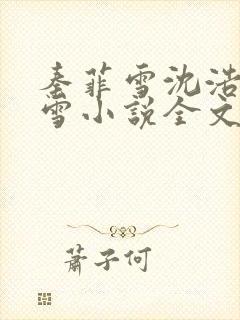 秦菲雪沈浩
雪小说全文
萧子何